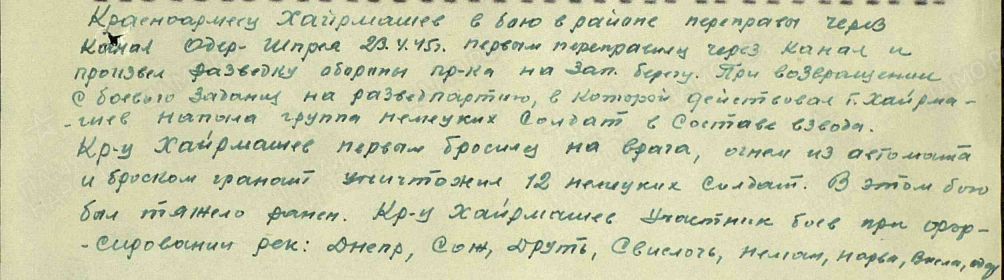 Красноармеец Хайрмашев в бою в районе переправы через
канал Одер-Шпрея 23.4.45г. первым переправилс через канал и
произвел разведку обороны пр-ка на Зап. берегу. При возвращении
с боевого задания на разведпартию, в которой действовал т. Хайрма-
-шев напала группа немецких солдат в составе взвода.
Кр-ц Хайрмашев первым бросилсц на врага, огнем из автомата
и броском гранат уничтожил 12 немецких солдат. В этом бою
был тяжело ранен. Кр-ц Хайрмашев участник боев при фор-
-сировании рек: Днепр, Сож, Друть, Свислочь, Неман, Нарва, Висла, Одер